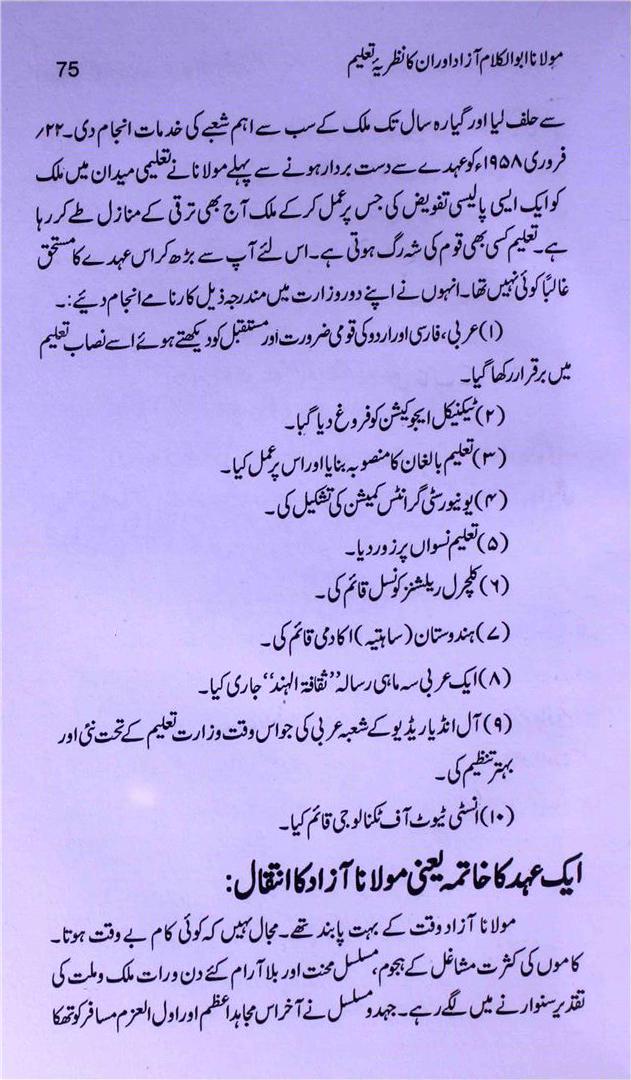 مولانا ابوالکلام آزاد اور ان کا نظریۂ تعلیم 75
سے حلف لیا اور گیارہ سال تک ملک کے سب سے اہم شعبے کی خدمات انجام دی۔ ۲۲؍
فروری ۱۹۵۸ء کو عہدے سے دست بردار ہونے سے پہلے مولانا نے تعلیمی میدان میں ملک
کو ایک ایسی پالیسی تفویض کی جس پر عمل کر کے ملک آج بھی ترقی کے منازل طے کر رہا
ہے۔ تعلیم کسی بھی قوم کی شہ رگ ہوتی ہے۔ اس لئے آپ سے بڑھ کر اس عہدے کا مستحق
غالباً کوئی نہیں تھا۔ انہوں نے اپنے دور وزارت میں مندرجہ ذیل کارنامے انجام دیئے:۔
(۱) عربی، فارسی اور اردو کی قومی ضرورت اور مستقبل کو دیکھتے ہوئے اسے نصاب تعلیم
میں برقرار رکھا گیا۔
(۲) ٹیکنیکل ایجوکیشن کو فروغ دیا گیا۔
(۳) تعلیم بالغان کا منصوبہ بنایا اور اس پر عمل کیا۔
(۴) یونیورسٹی گرانٹس کمیشن کی تشکیل کی۔
(۵) تعلیم نسواں پر زور دیا۔
(۶) کلچرل ریلشنز کونسل قائم کی۔
(۷) ہندوستان (ساہتیہ) اکادمی قائم کی۔
(۸) ایک عربی سہ ماہی رسالہ ”ثقافۃ الہند“ جاری کیا۔
(۹) آل انڈیا ریڈیو کے شعبہ عربی کی جو اس وقت وزارت تعلیم کے تحت نئی اور
بہتر تنظیم کی۔
(۱۰) انسٹی ٹیوٹ آف ٹکنالوجی قائم کیا۔
ایک عہد کا خاتمہ یعنی مولانا آزاد کا انتقال:
مولانا آزاد وقت کے بہت پابند تھے۔ مجال نہیں کہ کوئی کام بے وقت ہوتا۔
کاموں کی کثرت مشاغل کے ہجوم، مسلسل محنت اور بلا آرام کئے دن و رات ملک و ملت کی
تقدیر سنوارنے میں لگے رہے۔ جہد و مسلسل نے آخر اس مجاہد اعظم اور اول العزم مسافر کو تھکا